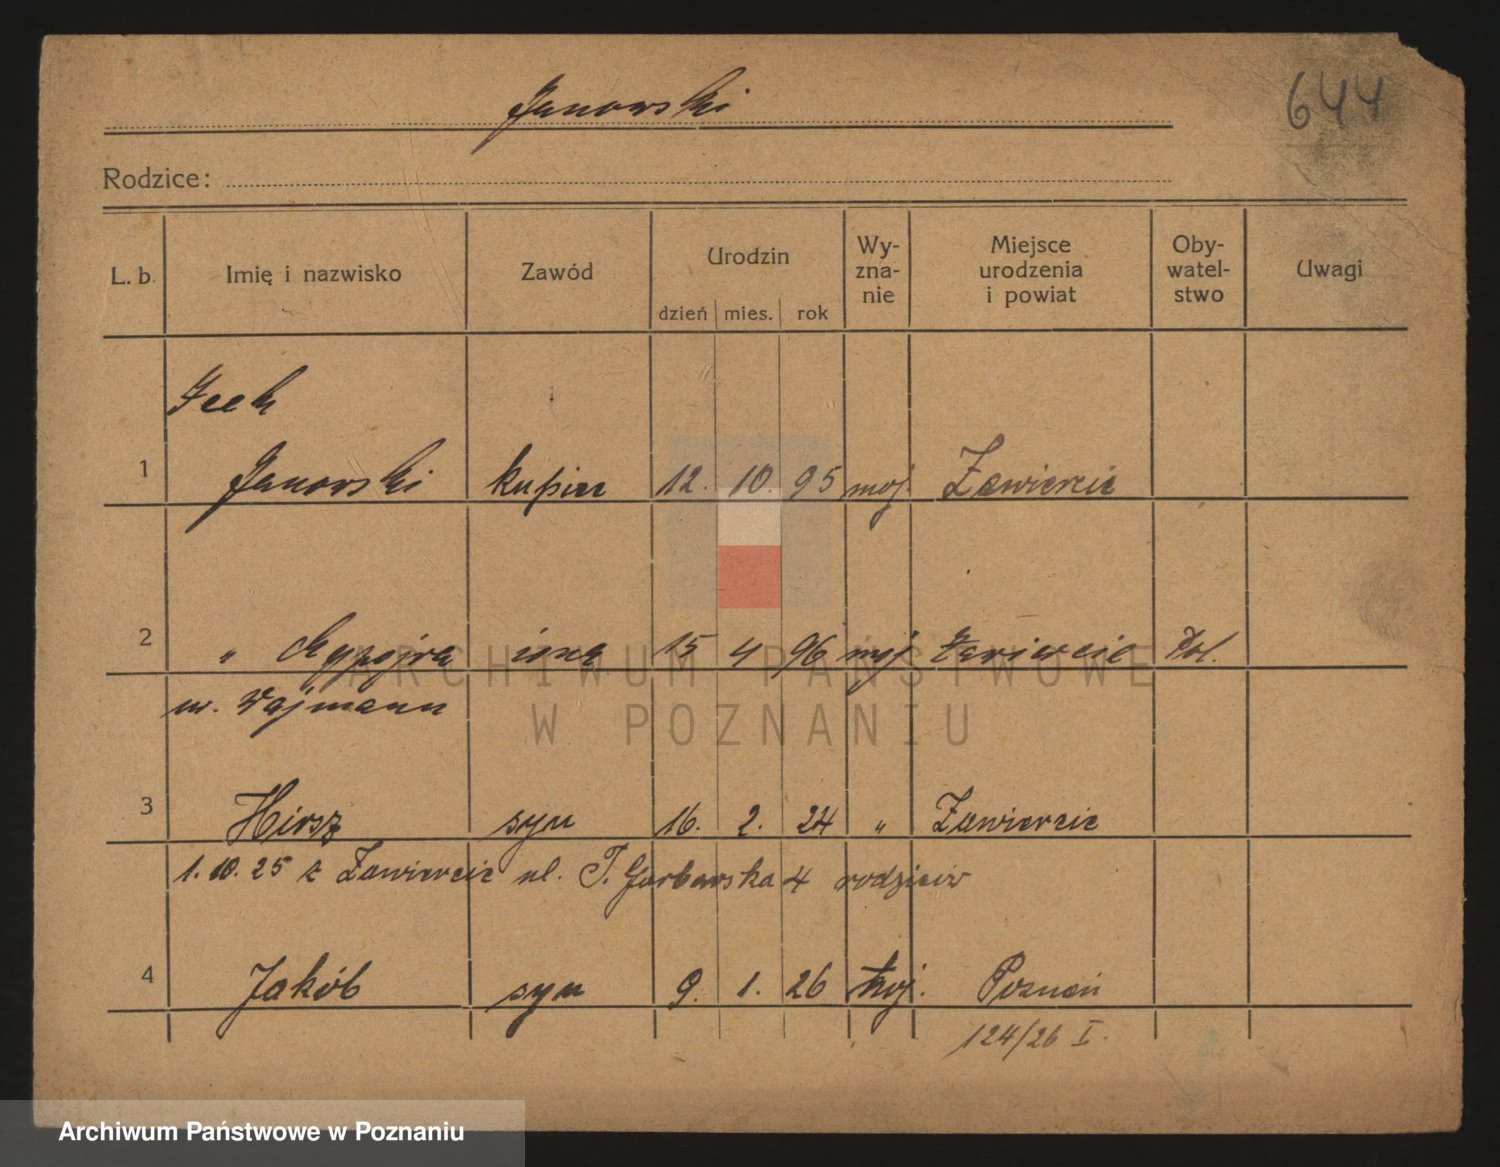 Janowski
644
Rodzice:
L. b. Imię i nazwisko Zawód Urodzin dzień mies. rok Wy-zna-nie Miejsce urodzenia i powiat Oby-watel-stwo Uwagi
Icek
1 Janowski kupiec 12. 10. 95 moj. Zawiercie
2 " żona 15 4 96 moj Zawiercie Pol.
ur. Wajmann
3 Hirsz syn 16. 2. 24 " Zawiercie
1. 10. 25 z Zawiercie ul. T. Garbarska 4 rodziców
4 Jakób syn 9. 1. 26 moj. Poznań
124/26 I.
ARCHIWUM PAŃSTWOWE
W POZNANIU
Archiwum Państwowe w Poznaniu